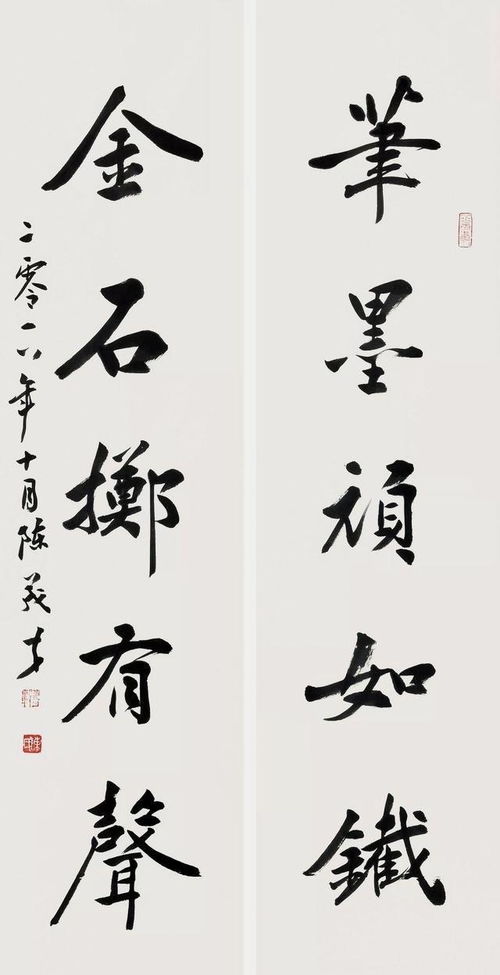 筆墨頑如鐵
金石擲有聲
二零一八年十月陳義